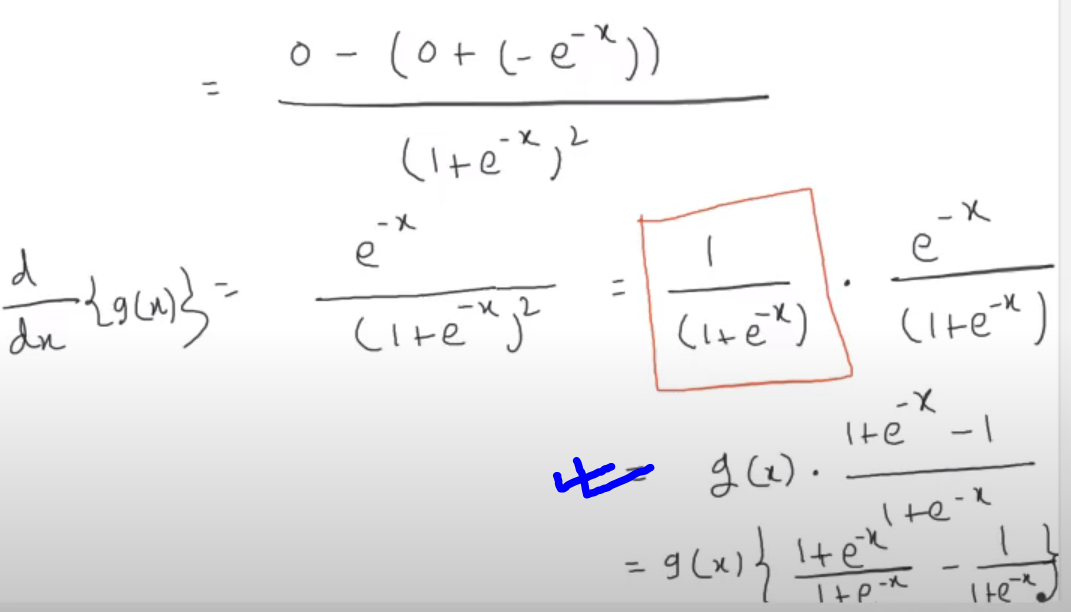 = 0 - (0 + (- e^{-x})) / (1+e^{-x})^2
d/dx {g(x)} = e^{-x} / (1+e^{-x})^2 = 1 / (1+e^{-x}) · e^{-x} / (1+e^{-x})
= g(x) · 1+e^{-x} - 1 / 1+e^{-x}
= g(x) { 1+e^{-x} / 1+e^{-x} - 1 / 1+e^{-x} }